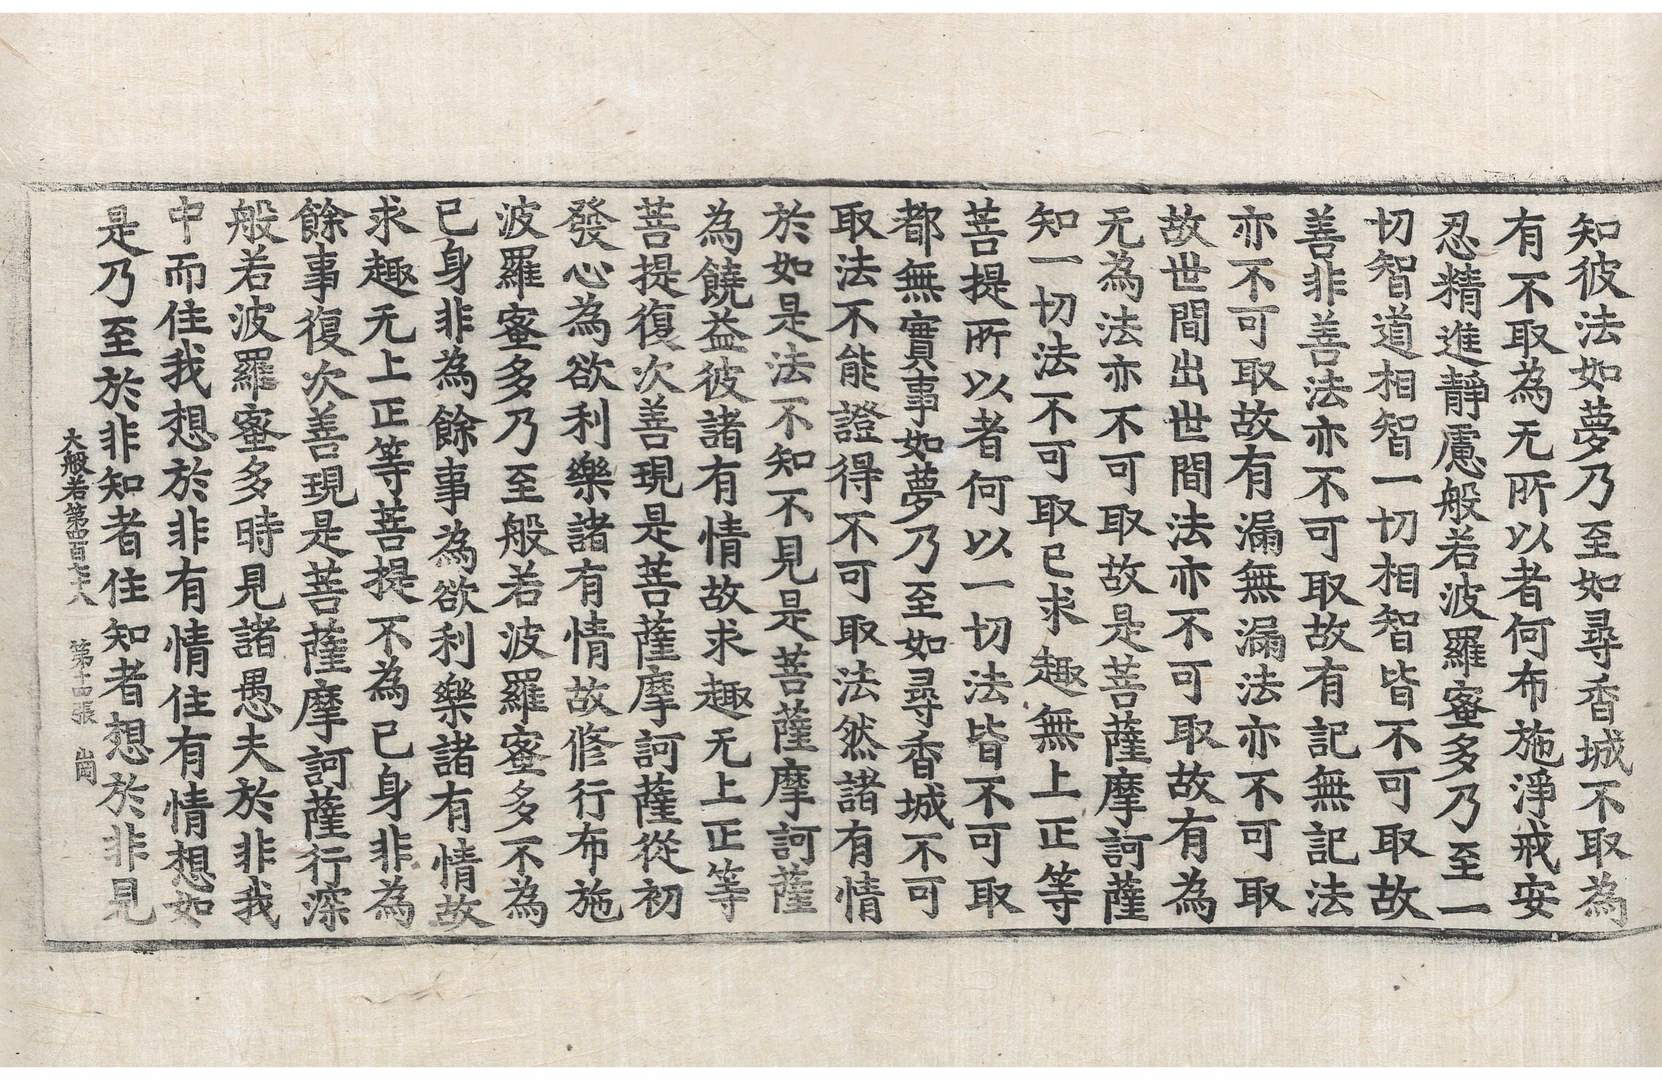 知彼法如夢乃至如尋香城不取為
有不取為无所以者何布施淨戒安
忍精進靜慮般若波羅蜜多乃至一
切智道相智一切相智皆不可取故
善非善法亦不可取故有記無記法
亦不可取故有漏無漏法亦不可取
故世間出世間法亦不可取故有為
无為法亦不可取故是菩薩摩訶薩
知一切法不可取已求趣無上正等
菩提所以者何以一切法皆不可取
都無實事如夢乃至如尋香城不可
取法不能證得不可取法然諸有情
於如是法不知不見是菩薩摩訶薩
為饒益彼諸有情故求趣无上正等
菩提復次善現是菩薩摩訶薩從初
發心為欲利樂諸有情故修行布施
波羅蜜多乃至般若波羅蜜多不為
己身非為餘事為欲利樂諸有情故
求趣无上正等菩提不為己身非為
餘事復次善現是菩薩摩訶薩行深
般若波羅蜜多時見諸愚夫於非我
中而住我想於非有情住有情想如
是乃至於非知者住知者想於非見
大般若第四百七十八 第十四張 崗